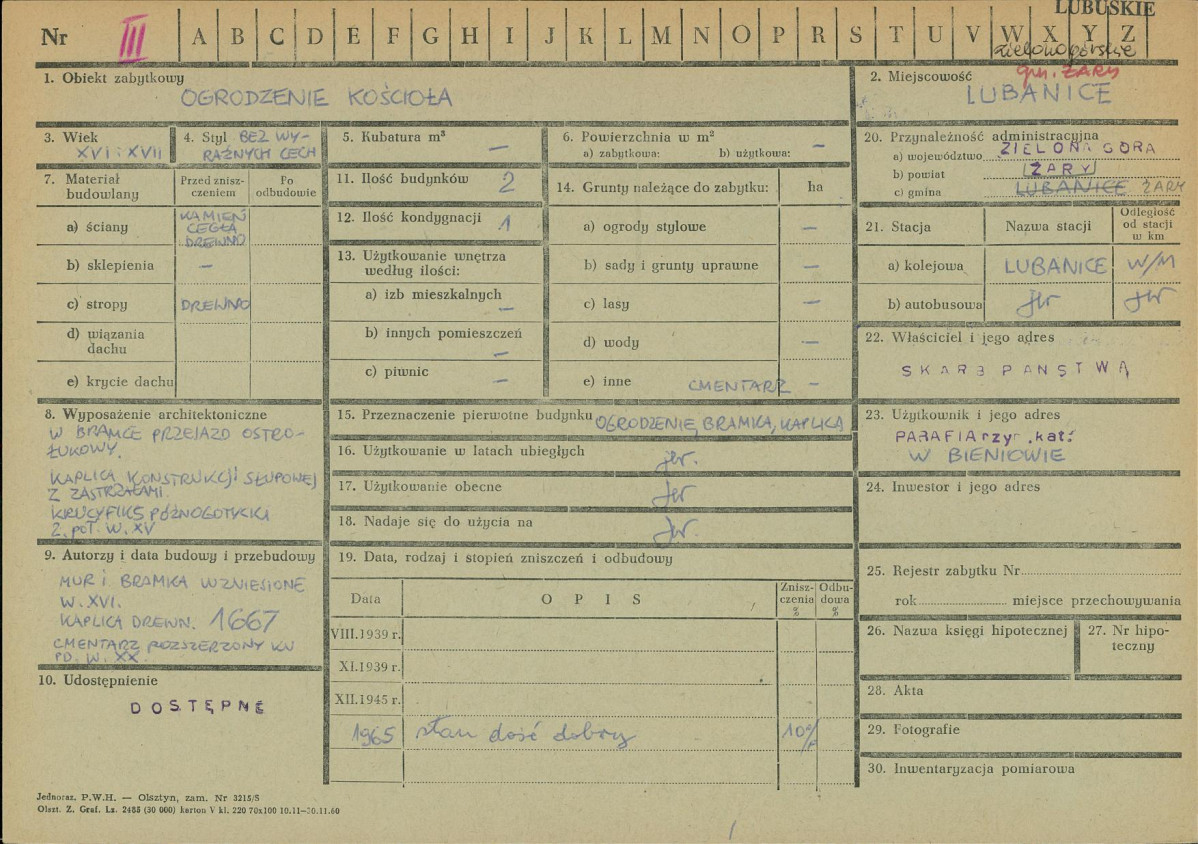 LUBUSKIE
Nr III A B C D E F G H I J K L M N O P R S T U V W X Y Z
zielonogórskie
1. Obiekt zabytkowy
OGRODZENIE KOŚCIOŁA
2. Miejscowość
gm. ŻARY
LUBANICE
3. Wiek
XVI i XVII
4. Styl BEZ WY-
RAŹNYCH CECH
5. Kubatura m³ —
6. Powierzchnia w m²
a) zabytkowa: b) użytkowa: —
20. Przynależność administracyjna
a) województwo ZIELONA GÓRA
b) powiat ŻARY
c) gmina LUBANICE ŻARY
7. Materiał budowlany
Przed znisz-
czeniem
Po
odbudowie
a) ściany
KAMIEŃ
CEGŁA
DREWNO
b) sklepienia —
c) stropy DREWNO
d) wiązania
dachu
e) krycie dachu
11. Ilość budynków 2
12. Ilość kondygnacji 1
13. Użytkowanie wnętrza
według ilości:
a) izb mieszkalnych —
b) innych pomieszczeń —
c) piwnic —
14. Grunty należące do zabytku: ha
a) ogrody stylowe —
b) sady i grunty uprawne —
c) lasy —
d) wody —
e) inne CMENTARZ —
21. Stacja Nazwa stacji
Odległość
od stacji
w km
a) kolejowa LUBANICE W/M
b) autobusowa jw jw
22. Właściciel i jego adres
SKARB PAŃSTWA
8. Wyposażenie architektoniczne
W BRAMCE PRZEJAZD OSTRO-
ŁUKOWY.
KAPLICA KONSTRUKCJI SŁUPOWEJ
Z ZASTRZAŁAMI.
KRUCYFIKS PÓŹNOGOTYCKI
2. POŁ. W. XV
15. Przeznaczenie pierwotne budynku OGRODZENIE, BRAMKA, KAPLICA
16. Użytkowanie w latach ubiegłych jw.
17. Użytkowanie obecne jw
18. Nadaje się do użycia na jw.
23. Użytkownik i jego adres
PARAFIA rzym. kat.
W BIENIOWIE
24. Inwestor i jego adres
9. Autorzy i data budowy i przebudowy
MUR i BRAMKA WZNIESIONE
W. XVI.
KAPLICA DREWN. 1667
CMENTARZ ROZSZERZONY KU
PD. W. XX.
10. Udostępnienie
DOSTĘPNE
19. Data, rodzaj i stopień zniszczeń i odbudowy
Data OPIS
Znisz-
czenia
%
Odbu-
dowa
%
VIII.1939 r.
XI.1939 r.
XII.1945 r.
1965 stan dość dobry 10%
25. Rejestr zabytku Nr
rok miejsce przechowywania
26. Nazwa księgi hipotecznej
27. Nr hipo-
teczny
28. Akta
29. Fotografie
30. Inwentaryzacja pomiarowa
Jednoraz. P.W.H. — Olsztyn, zam. Nr 3215/S
Olszt. Z. Graf. Lz. 2485 (30 000) karton V kl. 220 70x100 10.11—30.11.60